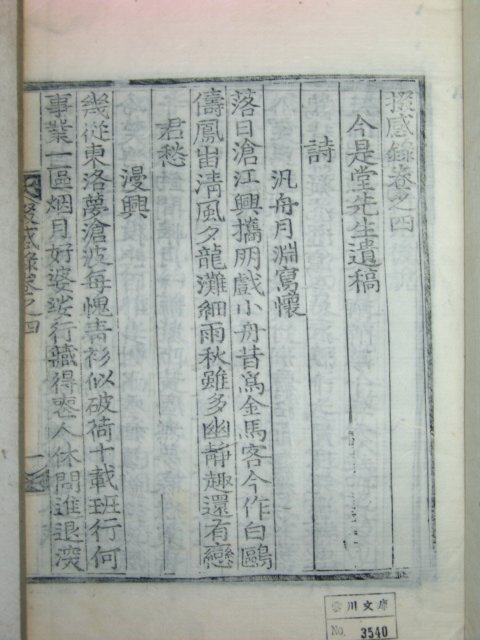 掇感錄卷之四
今是堂先生遺稿
詩
汎舟月淵寫懷
落日滄江興攜朋戲小舟昔爲金馬客今作白鷗
儔鳳岀淸風夕龍灘細雨秋雖多幽靜趣還有戀
君愁
漫興
幾從東洛夢滄波每愧靑衫似破荷十載班行何
事業一區烟月好婆娑行藏得喪人休問進退淚
感錄卷之四
一
川文庫
No. 3540